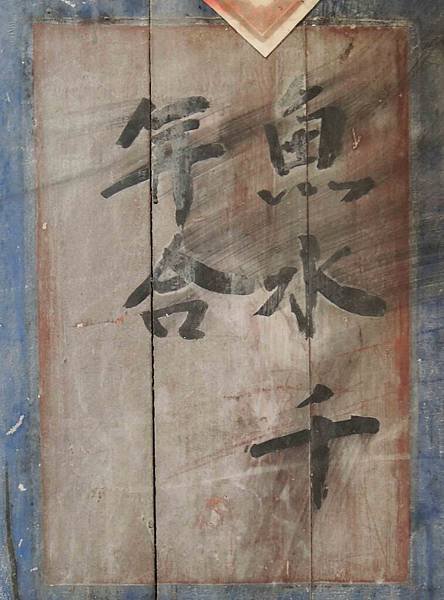 魚水千
年合